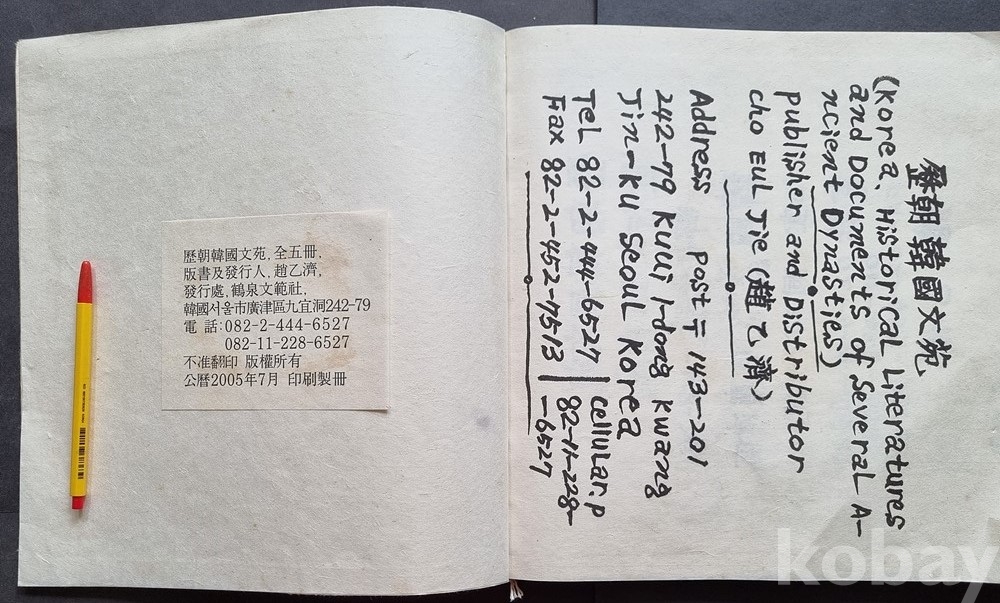 歷朝韓國文苑, 全五冊,
版書及發行人, 趙乙濟,
發行處, 鶴泉文範社,
韓國서울市廣津區九宜洞242-79
電 話:082-2-444-6527
082-11-228-6527
不准翻印 版權所有
公曆2005年7月 印刷製冊
歷朝韓國文苑
(Korea, Historical Literatures
and Documents of Several A-
ncient Dynasties)
publisher and Distributor
cho Eul Jie (趙乙濟)
Address post〒143-201
242-79 Kuui 1-dong Kwang
Jin-Ku Seoul Korea
Tel 82-2-444-6527 | cellular.p
82-11-228-
-6527
Fax 82-2-452-7513
kobay